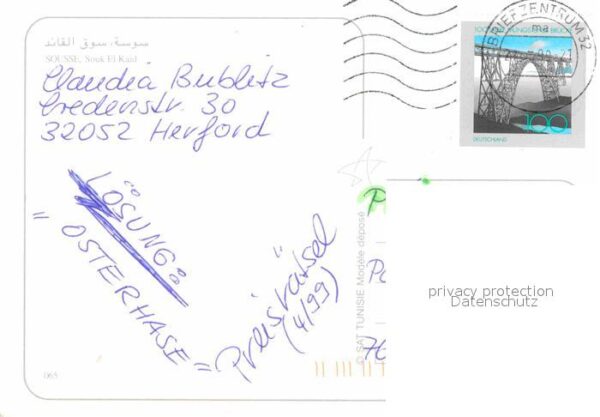 سوسة، سوق القائد
SOUSSE, Souk El Kaid
Claudia Bublitz
Credenstr. 30
32052 Herford
LÖSUNG:
"OSTERHASE"
"Preisrätsel
(4/99)
© SAT TUNISIE Modèle déposé
065
BRIEFZENTRUM 32
ma
100
DEUTSCHLAND
P
Po
70
privacy protection
Datenschutz